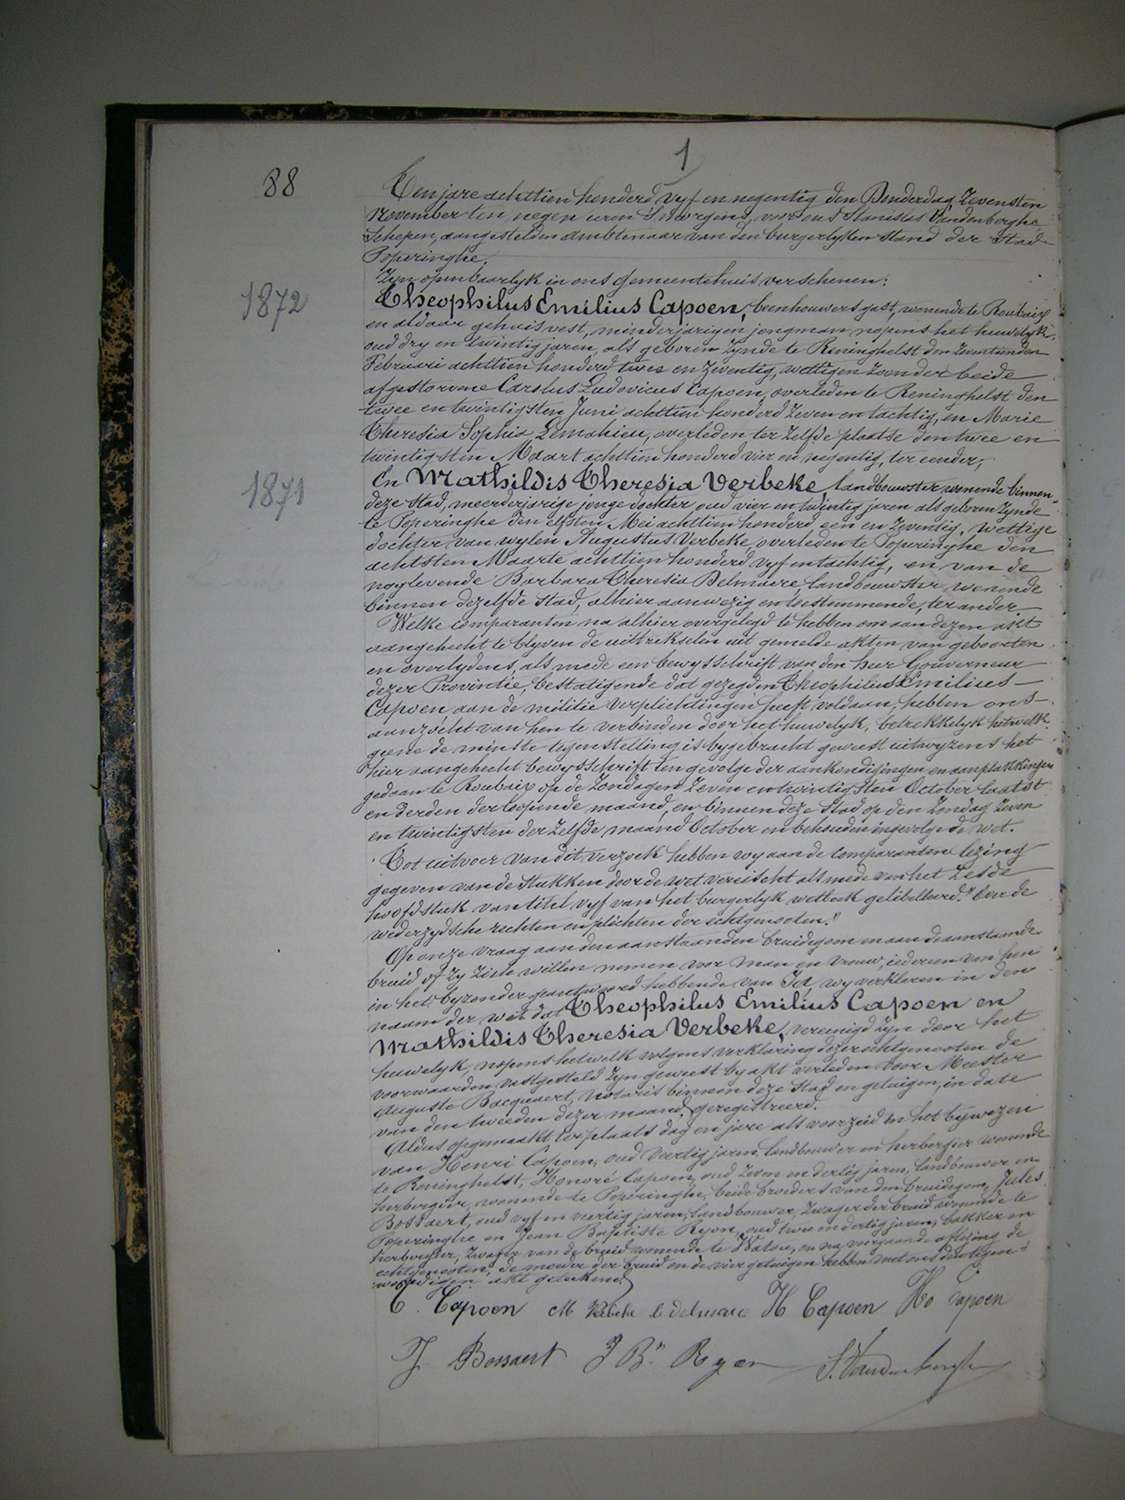 1
88
Ten jare achttien honderd vyf en negentig den Donderdag Zevensten
November ten negen uren 's morgens, voor ons Stanislas Vandenberghe
Schepen, aangestelden ambtenaar van den burgerlyken stand der Stad
Poperinghe.
Zyn openbaarlyk in ons Gemeentehuis verschenen:
1872
Theophilus Emilius Capoen, beenhouwersgast, wonende te Roubaix
en aldaar gehuisvest, minderjarigen jongman, nopens het huwelyk,
oud dry en twintig jaren, als geboren zynde te Reninghelst den Zeventienden
Februari achttien honderd twee en zeventig, wettigen zoon der beide
afgestorvene Carolus Ludovicus Capoen, overleden te Reninghelst den
twee en twintigsten Juni achttien honderd Zeven en tachtig, en Marie
Theresia Sophia Lemahieu, overleden ter zelfde plaatse den twee en
twintigsten Maart achttien honderd vier en negentig, ter eender,
1871
En Mathildis Theresia Verbeke, landbouwster, wonende binnen
deze stad, meerderjarige jonge dochter oud vier en twintig jaren als geboren zynde
te Poperinghe den elfsten Mei achttien honderd een en zeventig, wettige
dochter van wylen Augustus Verbeke, overleden te Poperinghe den
achtsten Maarte achttien honderd vyf en tachtig, en van de
nog levende Barbara Theresia Delmaere, landbouwster, wonende
binnen dezelfde stad, alhier aanwezig en toestemmende, ter ander.
Welke comparanten na alhier overgelegd te hebben om aan dezen akt
aangehecht te blyven de uittrekselen uit gemelde akten van geboorten
en overlydens, als mede een bewysschrift van den heer Gouverneur
dezer Provintie, bestatigende dat gezegden Theophilus Emilius
Capoen aan de militie verplichtingen heeft voldaan, hebben ons
aanzocht van hen te verbinden door het huwelyk, betrekkelyk hetwelk
geene de minste tegenstelling is bygebracht geweest uitwyzens het
hier aangehecht bewysschrift ten gevolge der aankondigingen en aanplakkingen
gedaan te Roubaix op de Zondagen Zeven en twintigsten October laatst
en derden der loopende maand, en binnen deze stad op den Zondag Zeven
en twintigsten der zelfde maand October en behouden ingevolge de wet.
Tot uitvoer van dit verzoek hebben wy aan de comparanten lezing
gegeven van de stukken door de wet vereischt als mede van het zesde
hoofdstuk van titel vyf van het burgerlyk wetboek gelibelleerd "Over de
wederzydsche rechten en plichten der echtgenooten."
Op onze vraag aan den aanstaanden bruidegom en aan de aanstaande
bruid of zy zich willen nemen voor man en vrouw, iedereen van hen
in het byzonder geantwoord hebbende van Ja, wy verklaren in den
naam der wet dat Theophilus Emilius Capoen en
Mathildis Theresia Verbeke, vereenigd zyn door het
huwelyk, nopens hetwelk volgens verklaring dezer echtgenooten de
voorwaarden vastgesteld zyn geweest by akt verleden voor Meester
Auguste Bacquaert, notaris binnen deze Stad en getuigen, in date
van den tweeden dezer maand, geregistreerd.
Aldus opgemaakt ter plaats dag en jare als voorzeid in het bywezen
van Henri Capoen, oud veertig jaren, landbouwer en herbergier wonende
te Reninghelst, Honoré Capoen, oud Zeven en dertig jaren, landbouwer en
herbergier, wonende te Poperinghe, beide broeders van den bruidegom, Jules
Bossaert, oud vyf en veertig jaren, landbouwer, Zwager der bruid wonende te
Poperinghe en Jean Baptiste Ryon, oud twee en dertig jaren, bakker en
herbergier, zwager van de bruid wonende te Watou, en na voorgaande aflezing de
echtgenooten, de moeder der bruid en de vier getuigen hebben met ons dezen tegen-
woordigen akt geteekend.
T. Capoen M Verbeke b delmaere H Capoen Ho Capoen
J. Bossaert J Bte Ryon S. Vandenberghe